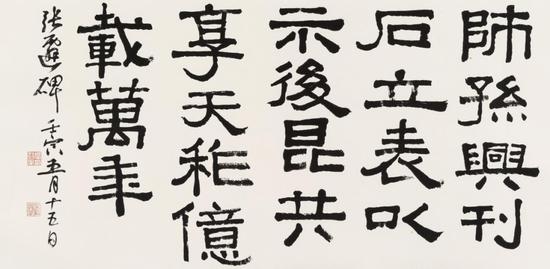 師孫興刊
石立表以
示後昆共
享天祚億
載萬年
張遷碑
壬寅五月十五日